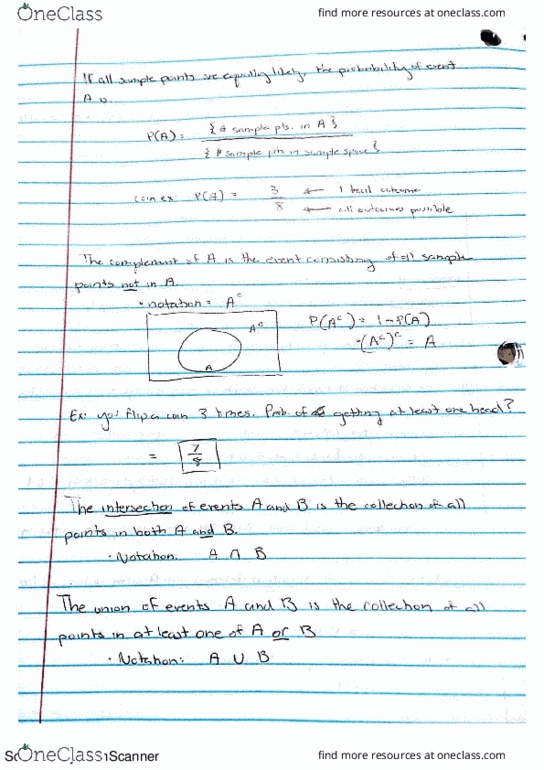 OneClass
find more resources at oneclass.com
If all sample points are equally likely, the probability of event
A is
P(A) = {# sample pts. in A}
{# sample pts in sample space}
coin ex: P(A) = 3 ← 1 tail outcome
8 ← all outcomes possible
The complement of A is the event consisting of all sample
points not in A.
• notation = Aᶜ
Aᶜ
P(Aᶜ) = 1 - P(A)
•(Aᶜ)ᶜ = A
A
Ex: you flip a coin 3 times. Prob. of getting at least one head?
= 7
8
The intersection of events A and B is the collection of all
points in both A and B.
• Notation: A ∩ B
The union of events A and B is the collection of all
points in at least one of A or B
• Notation: A ∪ B
OneClass
Scanner
find more resources at oneclass.com